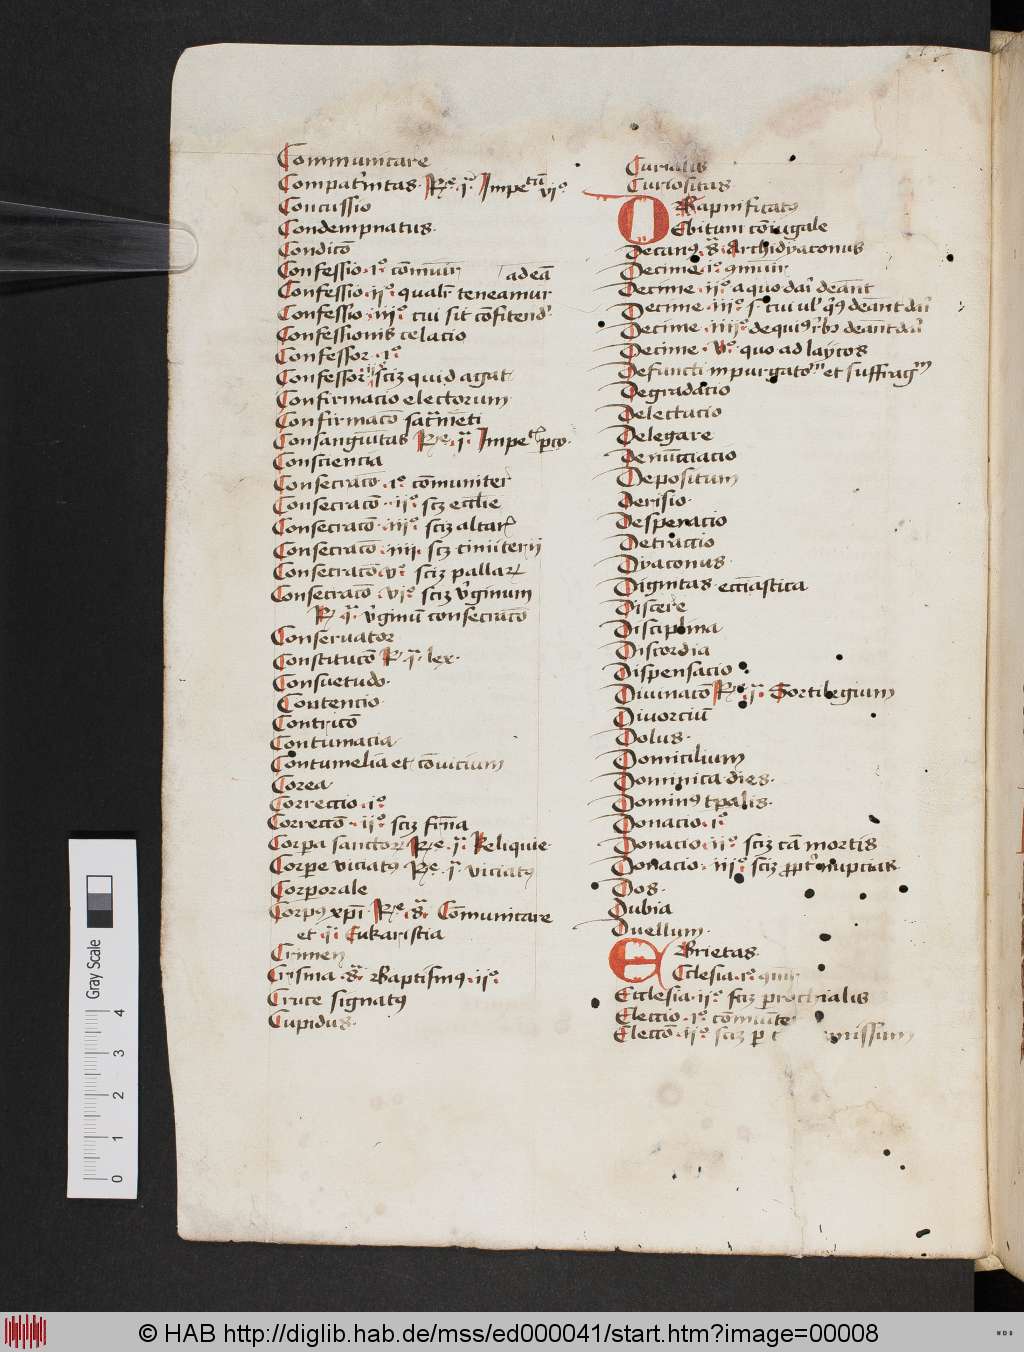 Communicare
Compat'nitas Re. q. Impetu vi°
Concussio
Condempnatus
Condico
Confessio i° comuit'
Confessio ii° qualr teneamur ad eam
Confessio iii° cui sit cofitend'
Confessionis celacio
Confessor i°
Confessor ii° sciz quid agat
Confirmacio electorum
Confirmaco sacmeti
Consanguitas Re. q. Impe
Consciencia
Consecraco i° comuniter
Consecraco ii° sciz ecclie
Consecraco iii° sciz altar
Consecraco iiii sciz cimiterii
Consecraco v° sciz pallar
Consecraco vi° sciz v'ginum
R. q. v'ginu consecraco
Conservator
Constituco R. q. lex
Consuetudo
Contencio
Contrico
Contumacia
Contumelia et convicium
Corea
Correccio i°
Correcco ii° sciz frna
Corpa sanctor Re. q. Reliquie
Corpe viciatus Re. q. viciatus
Corporale
Corpus xpi Re. s. Comunicare
et q. Eukaristia
Crimen
Crisma s. Baptismus ii°
Cruce signatus
Cupidus
Curialis
Curiositas
D
Ebitum coniugale
Decanus s. Archidyaconus
Decime i°
Decime ii° a quo dari debeant
Decime iii° s. cui ul' debeant dari
Decime iiii° de quibus debeant dari
Decime v° quo ad laycos
Defuncti in purgato et suffrag
Degradacio
Delectacio
Delegare
Denunciacio
Depositum
Derisio
Desperacio
Detraccio
Dyaconus
Dignitas ecciastica
Discere
Disciplina
Discordia
Dispensacio
Divinaco Re. q. Sortilegium
Divorciu
Dolus
Domicilium
Dominica dies
Dominus tpalis
Donacio i°
Donacio ii° sciz ca mortis
Donacio iii° sciz ppt' nupcias
Dos
Dubia
Duellum
EBrietas
Cclesia i°
Ecclesia ii° sciz prochialis
Eleccio i° comuite
Elecco ii° sciz p
Gray Scale
4
3
2
1
0
© HAB http://diglib.hab.de/mss/ed000041/start.htm?image=00008